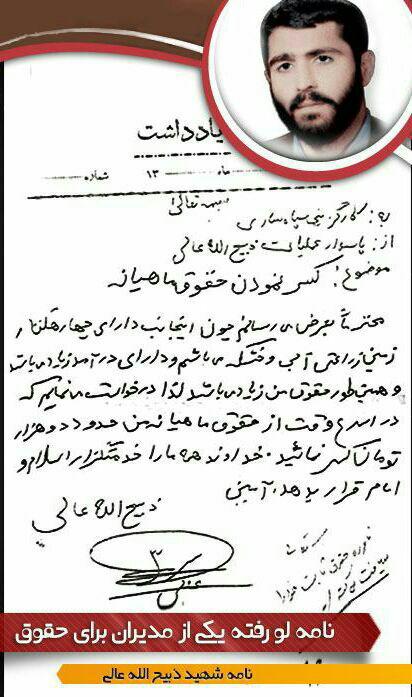 یادداشت
ماه ۱۳ شماره
بسمه تعالی
به: کارگزینی سپاه ساری
از: پاسدار عملیات ذبیح الله عالی
موضوع: کسر نمودن حقوق ماهیانه
محترماً بعرض می رسانم چون اینجانب دارای چهار هکتار
زمین زراعتی آبی و خشکه می باشم و دارای درآمد زیاد می باشد
و همین طور حقوق من زیاد می باشد لذا درخواست می نمایم که
در اسرع وقت از حقوق ماهیانه من حدود دو هزار
تومان کسر نمائید. خداوند همه ما را خدمتگزار اسلام و
امام قرار بدهد، آمین
ذبیح الله عالی
نامه لو رفته یکی از مدیران برای حقوق
نامه شهید ذبیح الله عالی